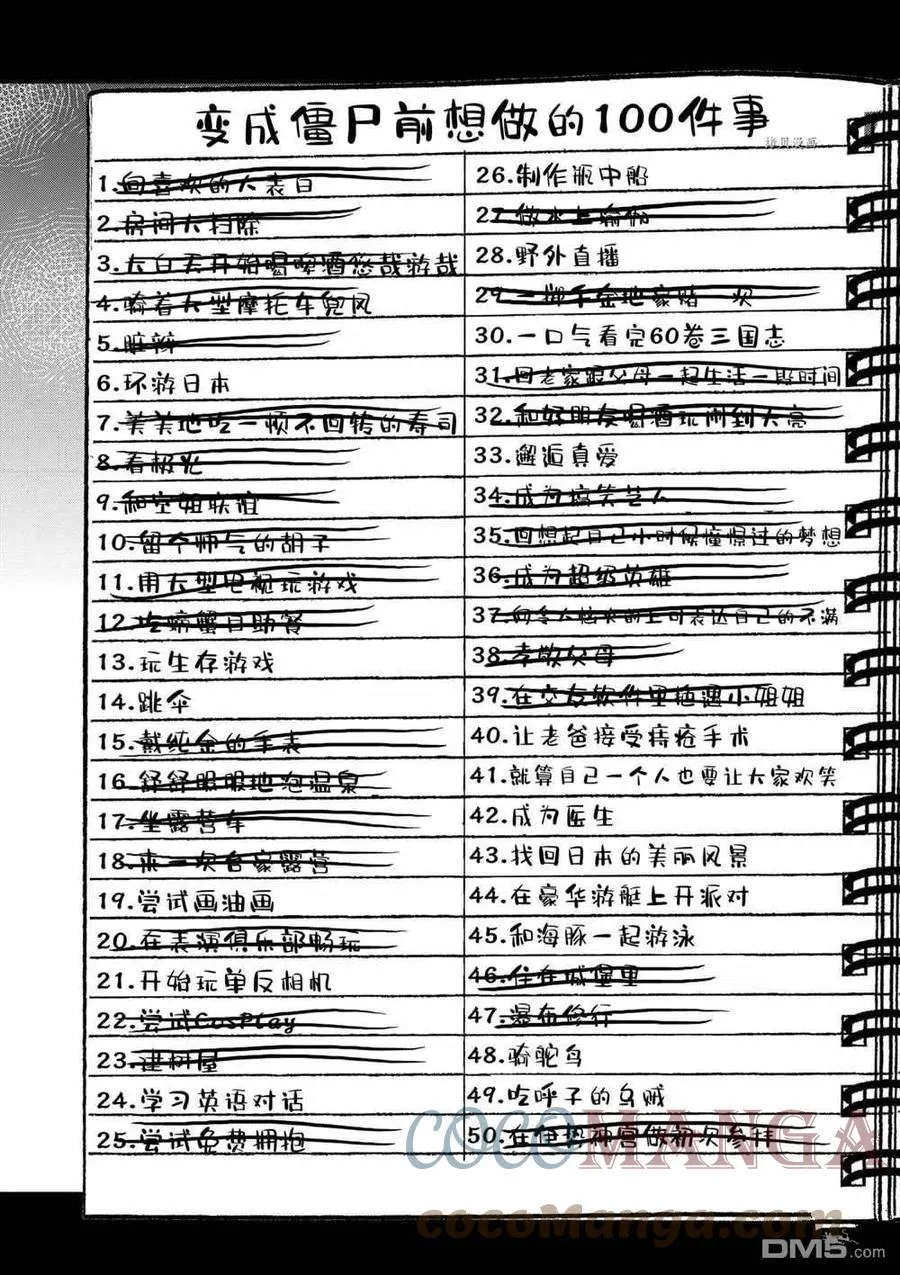 变成僵尸前想做的100件事
拷贝漫画
1.向喜欢的人表白
2.房间大扫除
3.大白天开始喝啤酒悠哉游哉
4.骑着大型摩托车兜风
5.脏辫
6.环游日本
7.美美地吃一顿不回转的寿司
8.看极光
9.和空姐联谊
10.留个帅气的胡子
11.用大型电视玩游戏
12.吃螃蟹自助餐
13.玩生存游戏
14.跳伞
15.戴纯金的手表
16.舒舒服服地泡温泉
17.坐露营车
18.来一次合家露营
19.尝试画油画
20.在表演俱乐部畅玩
21.开始玩单反相机
22.尝试CosPlay
23.建树屋
24.学习英语对话
25.尝试免费拥抱
26.制作瓶中船
27.做水上瑜伽
28.野外直播
29.一掷千金地豪赌一次
30.一口气看完60卷三国志
31.回老家跟父母一起生活一段时间
32.和好朋友喝酒玩闹到天亮
33.邂逅真爱
34.成为搞笑艺人
35.回想起自己小时候憧憬过的梦想
36.成为超级英雄
37.向令人恼火的上司表达自己的不满
38.孝敬父母
39.在交友软件里艳遇小姐姐
40.让老爸接受痔疮手术
41.就算自己一个人也要让大家欢笑
42.成为医生
43.找回日本的美丽风景
44.在豪华游艇上开派对
45.和海豚一起游泳
46.住在城堡里
47.瀑布修行
48.骑鸵鸟
49.吃呼子的乌贼
50.在伊势神宫做新次参拜
COCOMANGA
cocoManga.com
DM5.com